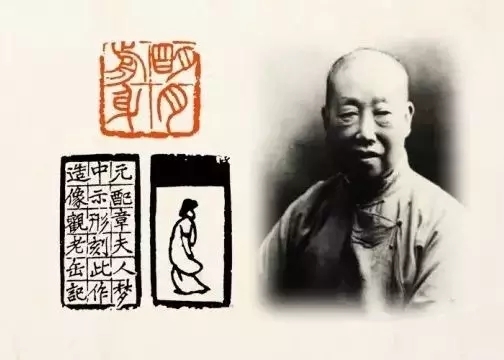 明月
前身
元配章夫人梦
中示形刻此作
造像觀老缶記